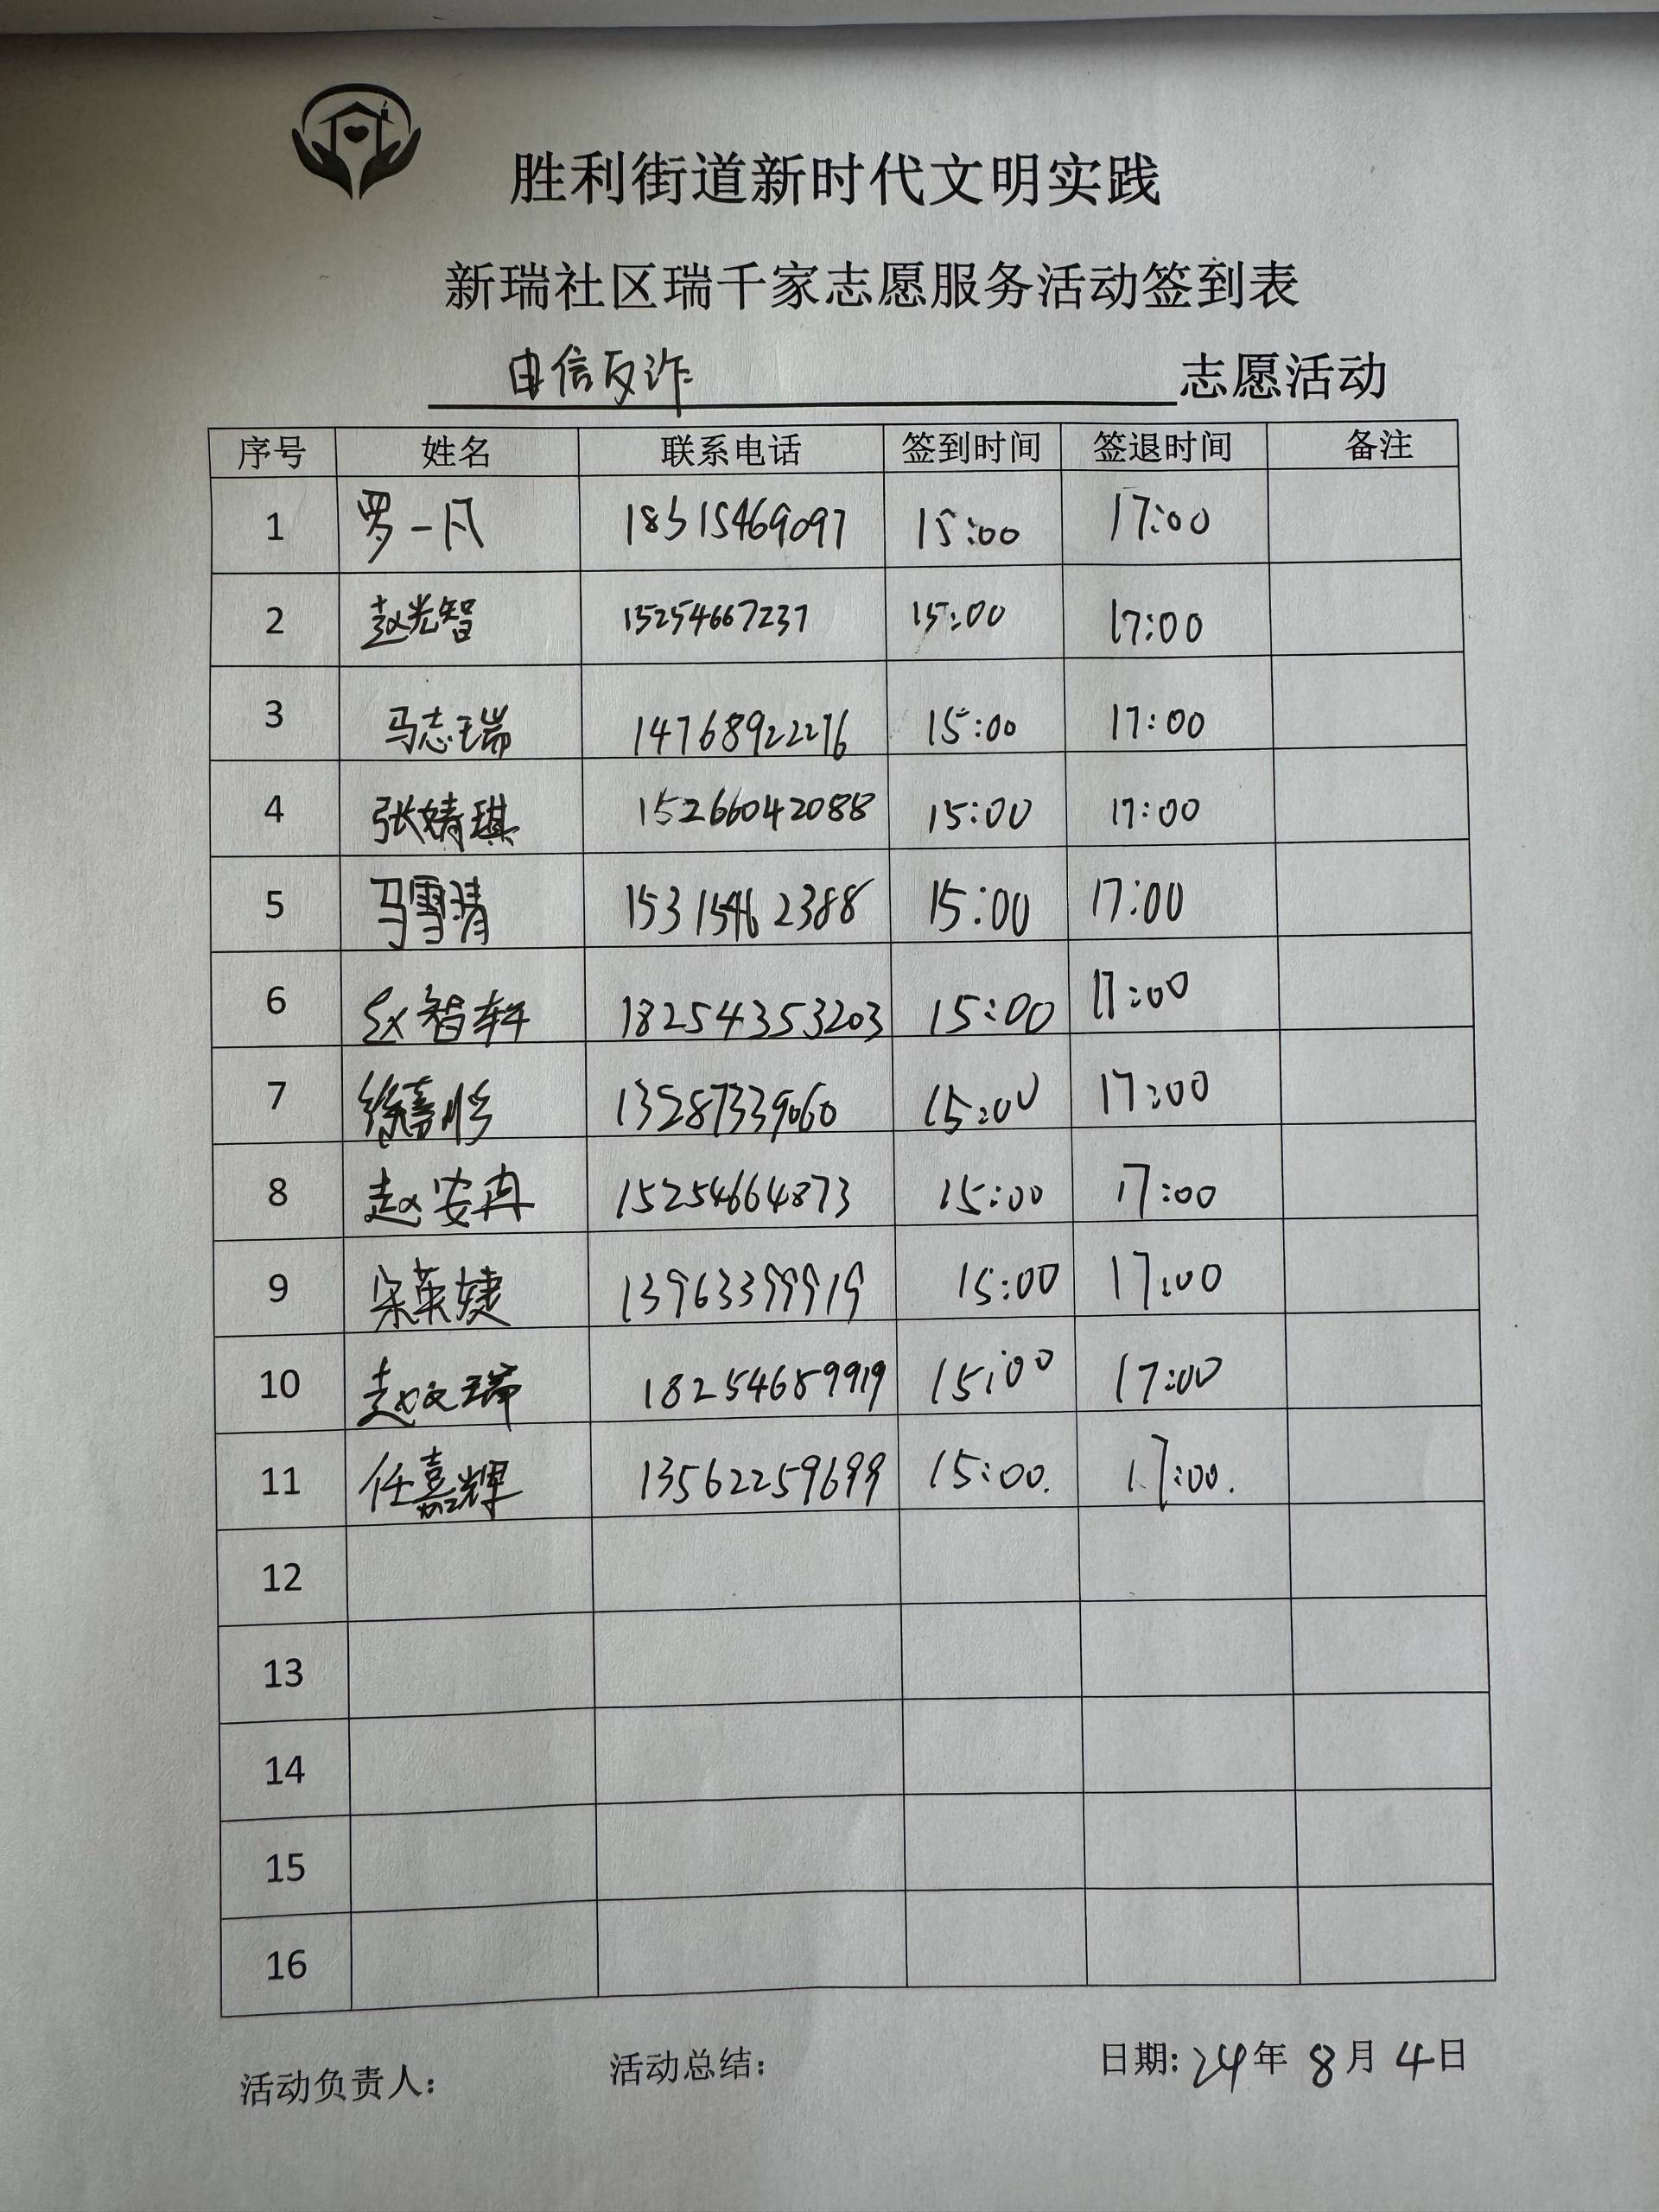 胜利街道新时代文明实践
新瑞社区瑞千家志愿服务活动签到表
电信反诈 志愿活动
序号 姓名 联系电话 签到时间 签退时间 备注
1 罗一凡 18315469097 15:00 17:00
2 赵光智 15254667237 15:00 17:00
3 马志瑞 14768922276 15:00 17:00
4 张婧琪 15266042088 15:00 17:00
5 马雪清 15315462388 15:00 17:00
6 赵智轩 18254353203 15:00 17:00
7 徐嘉彤 13287339060 15:00 17:00
8 赵安冉 15254664873 15:00 17:00
9 宋英婕 13963399919 15:00 17:00
10 赵文瑞 18254689919 15:00 17:00
11 任嘉辉 13562259699 15:00. 17:00.
12
13
14
15
16
活动负责人： 活动总结： 日期: 24年 8月 4日